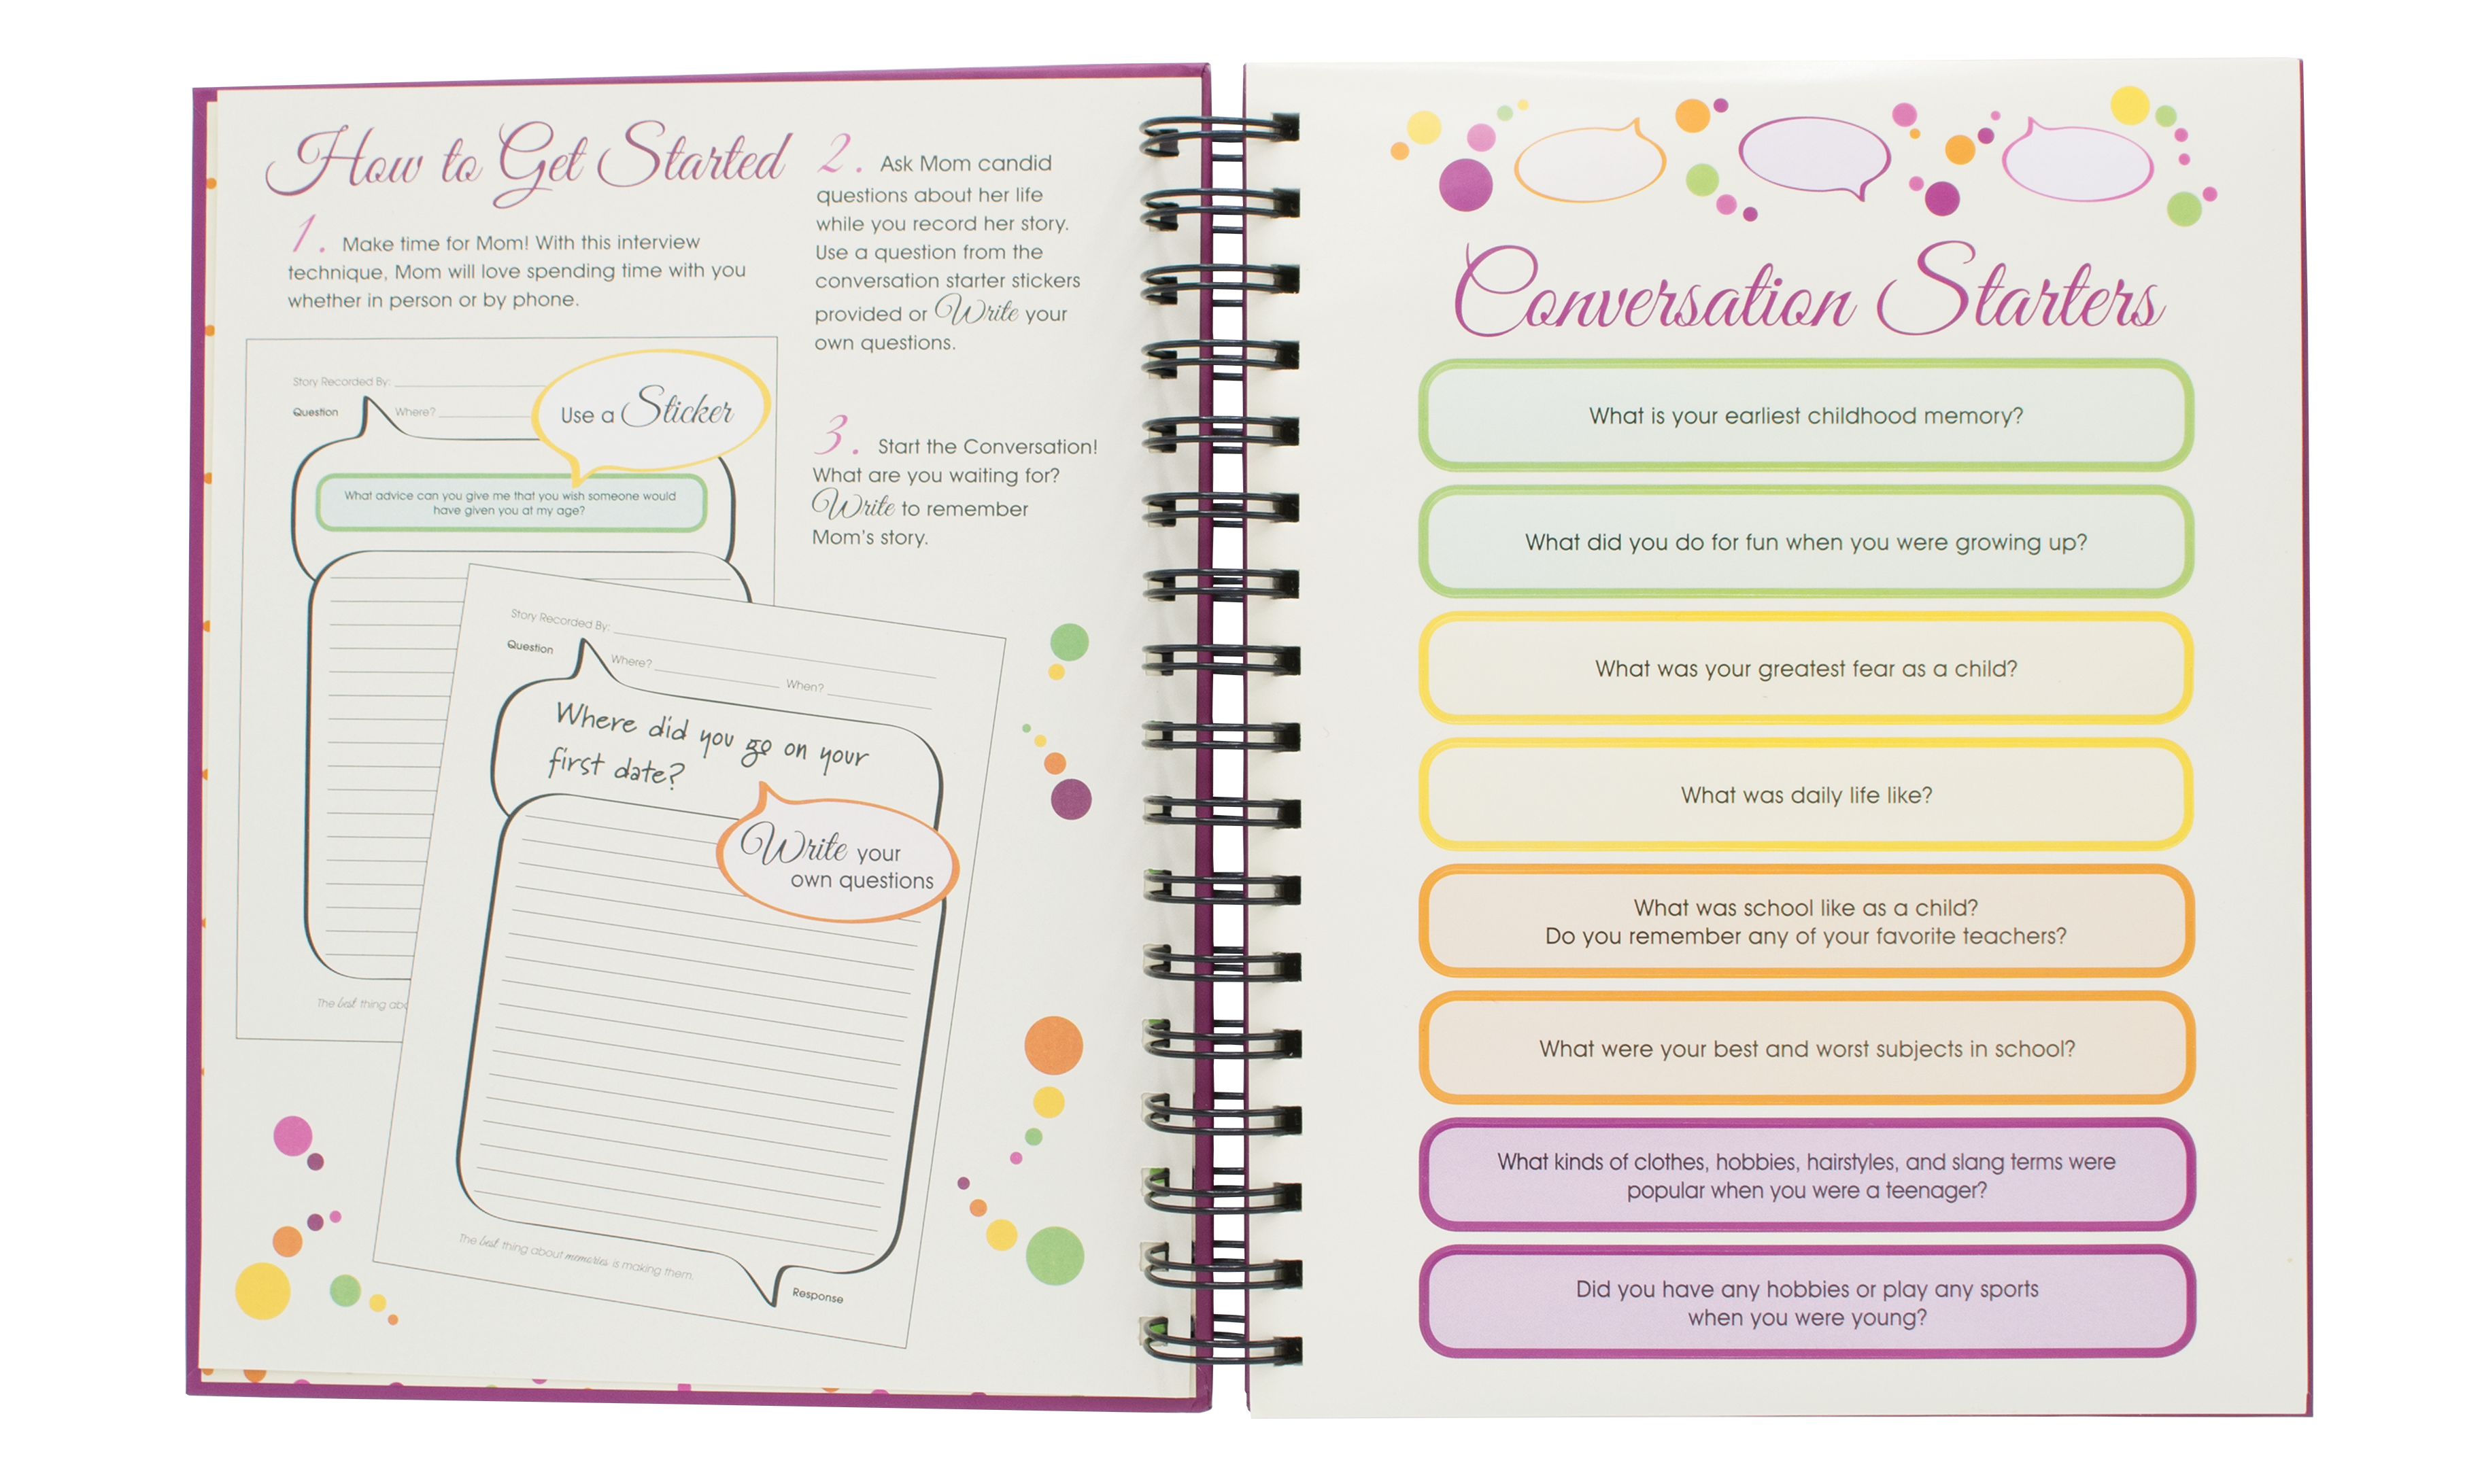 How to Get Started
1. Make time for Mom! With this interview
technique, Mom will love spending time with you
whether in person or by phone.
Story Recorded By:
Question
Where?
Use a Sticker
What advice can you give me that you wish someone would
have given you at my age?
The best thing abo
Story Recorded By:
Question
Where?
When?
Where did you go on your
first date?
Write your
own questions
The best thing about memories is making them.
Response
2. Ask Mom candid
questions about her life
while you record her story.
Use a question from the
conversation starter stickers
provided or Write your
own questions.
3. Start the Conversation!
What are you waiting for?
Write to remember
Mom's story.
Conversation Starters
What is your earliest childhood memory?
What did you do for fun when you were growing up?
What was your greatest fear as a child?
What was daily life like?
What was school like as a child?
Do you remember any of your favorite teachers?
What were your best and worst subjects in school?
What kinds of clothes, hobbies, hairstyles, and slang terms were
popular when you were a teenager?
Did you have any hobbies or play any sports
when you were young?